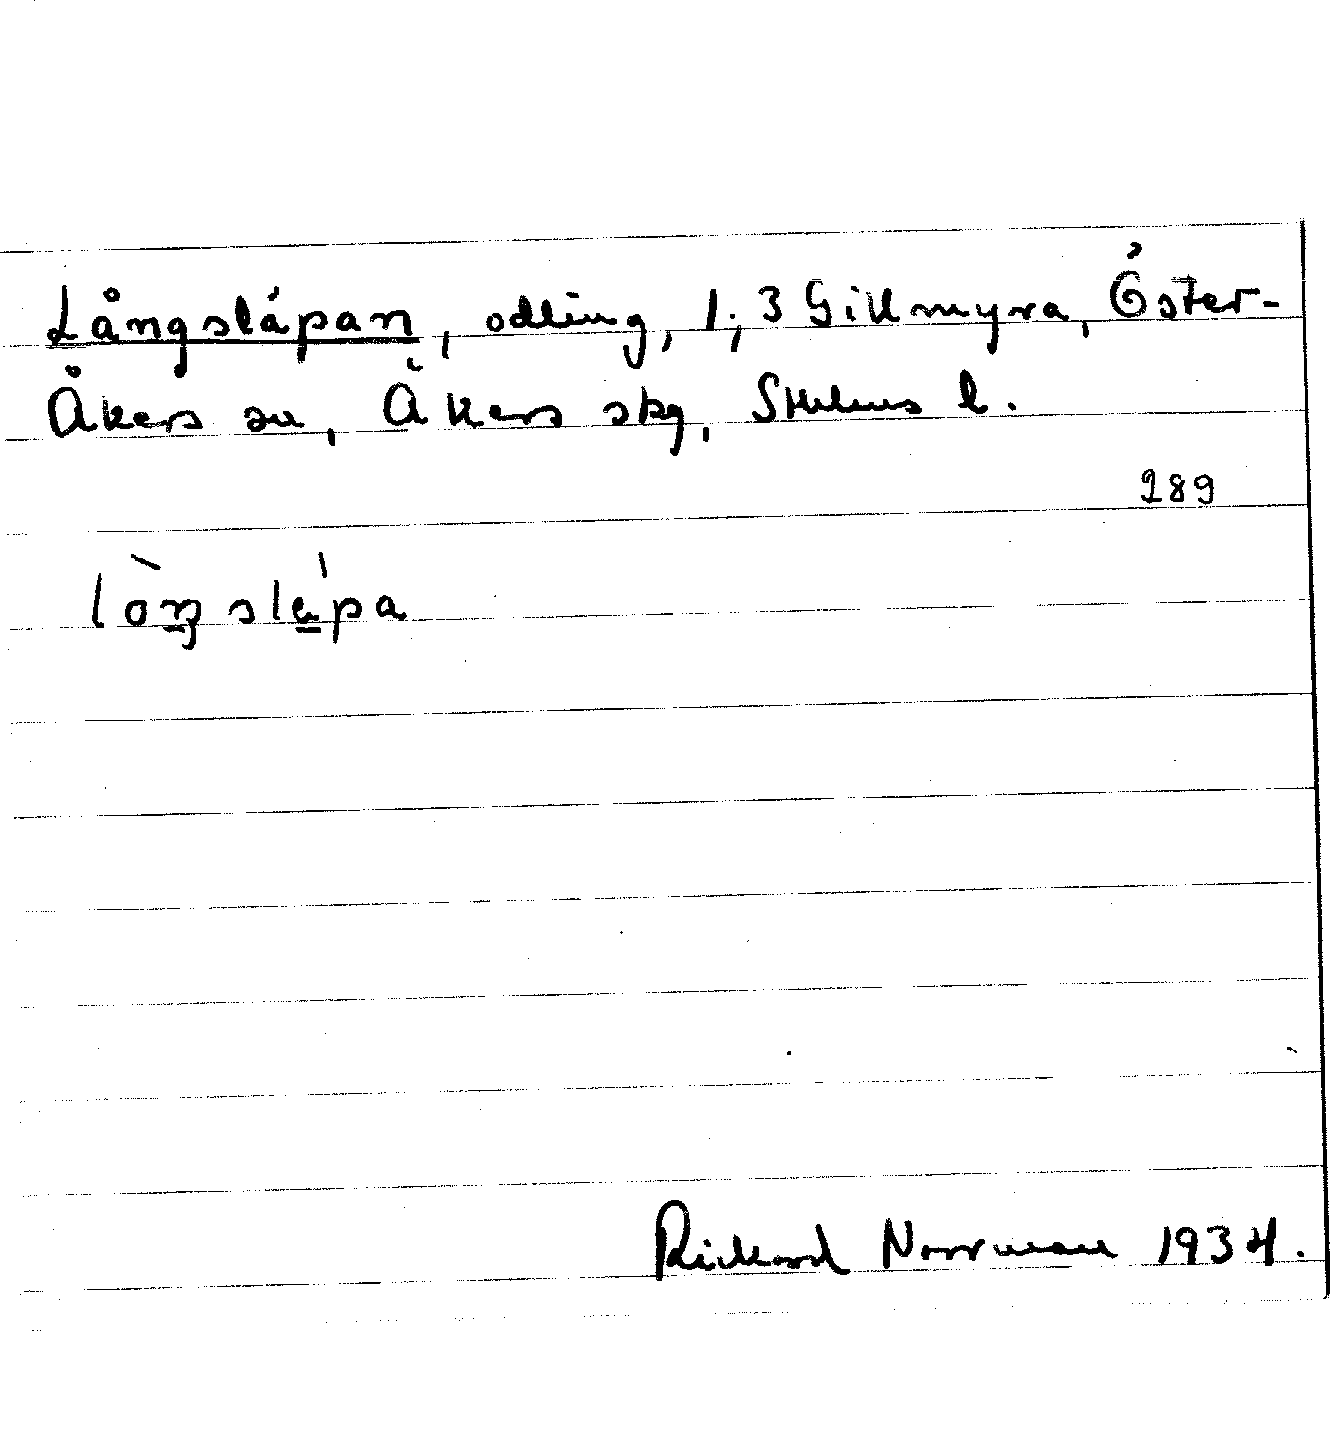 Långsläpan, odling, 1;3 Gillmyra, Öster-
Åkers sn, Åkers skg, Sthlms l.
289
lòŋslápa
Rickard Norrman 1934.